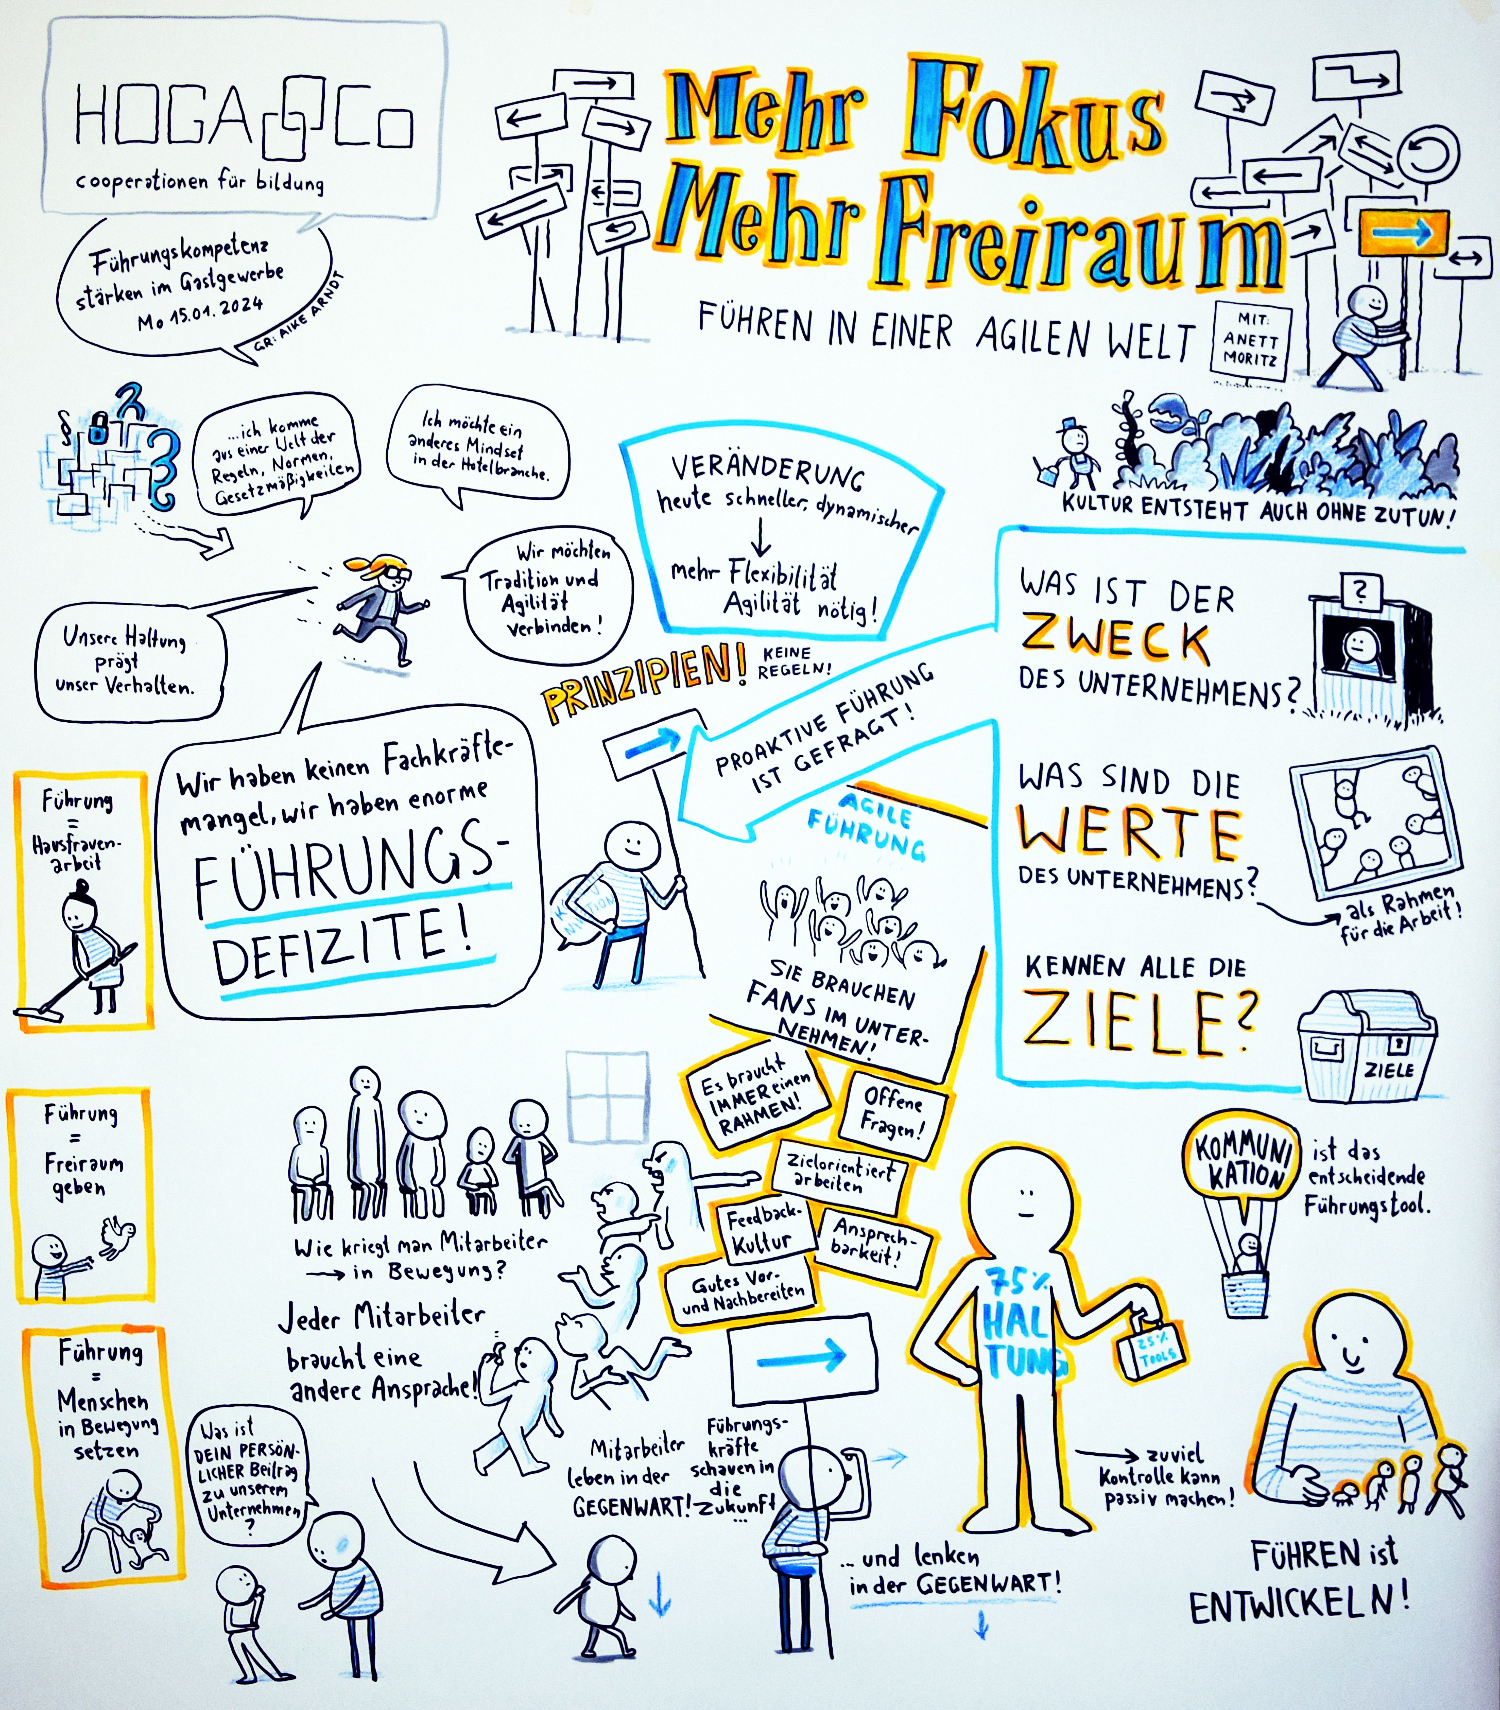 HOGA Co
cooperationen für bildung
Führungskompetenz
stärken im Gastgewerbe
Mo 15.01.2024
GR: AIKE ARNDT
Mehr Fokus
Mehr Freiraum
FÜHREN IN EINER AGILEN WELT
MIT:
ANETT
MORITZ
§
???
...ich komme
aus einer Welt der
Regeln, Normen,
Gesetzmäßigkeiten
Ich möchte ein
anderes Mindset
in der Hotelbranche.
Wir möchten
Tradition und
Agilität
verbinden!
Unsere Haltung
prägt
unser Verhalten.
Wir haben keinen Fachkräfte-
mangel, wir haben enorme
FÜHRUNGS-
DEFIZITE!
VERÄNDERUNG
heute schneller, dynamischer
mehr Flexibilität
Agilität nötig!
PRINZIPIEN!
KEINE
REGELN!
KULTUR ENTSTEHT AUCH OHNE ZUTUN!
WAS IST DER
ZWECK
DES UNTERNEHMENS?
?
WAS SIND DIE
WERTE
DES UNTERNEHMENS?
als Rahmen
für die Arbeit!
KENNEN ALLE DIE
ZIELE?
ZIELE
PROAKTIVE FÜHRUNG
IST GEFRAGT!
AGILE
FÜHRUNG
SIE BRAUCHEN
FANS IM UNTER-
NEHMEN!
Führung
=
Hausfrauen-
arbeit
Führung
=
Freiraum
geben
Führung
=
Menschen
in Bewegung
setzen
Wie kriegt man Mitarbeiter
in Bewegung?
Jeder Mitarbeiter
braucht eine
andere Ansprache!
Es braucht
IMMER einen
RAHMEN!
Offene
Fragen!
Zielorientiert
arbeiten
Feedback-
Kultur
Ansprech-
barkeit!
Gutes Vor-
und Nachbereiten
75%
HAL
TUNG
25%
TOOLS
KOMMUNI
KATION
ist das
entscheidende
Führungstool.
Was ist
DEIN PERSÖN-
LICHER Beitrag
zu unserem
Unternehmen
?
Mitarbeiter
leben in der
GEGENWART!
Führungs-
kräfte
schauen in
die
Zukunft
...
... und lenken
in der GEGENWART!
zuviel
Kontrolle kann
passiv machen!
FÜHREN ist
ENTWICKELN!